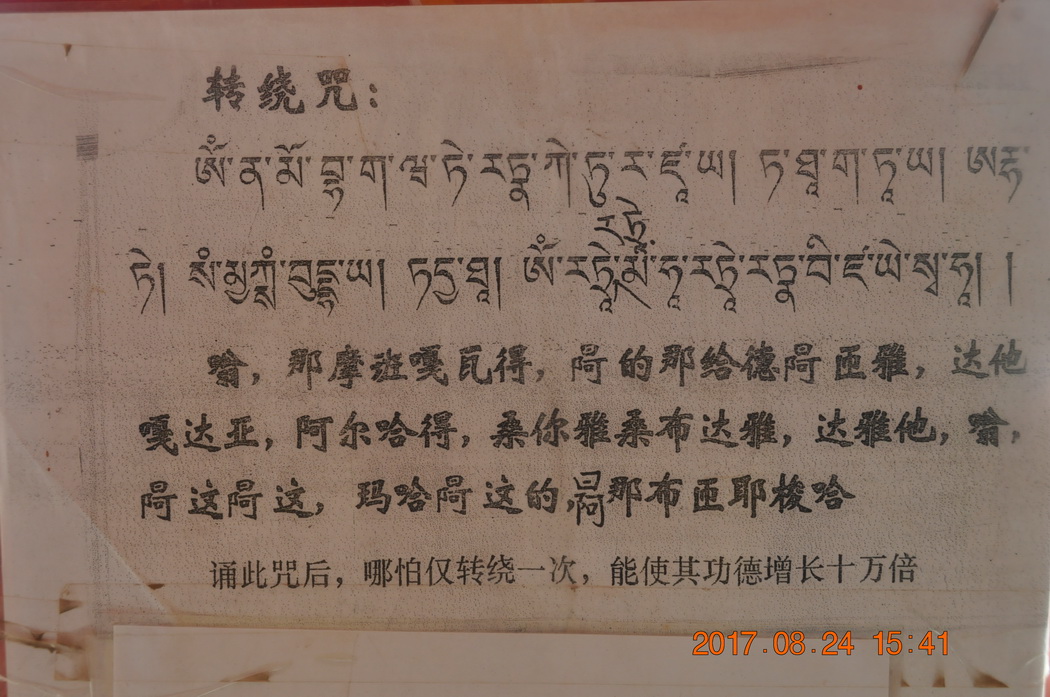 转绕咒：
ༀ་ན་མོ་བྷ་ག་ཝ་ཏེ་རཏྣ་ཀེ་ཏུ་ར་ཛཱ་ཡ། ཏ་ཐཱ་ག་ཏཱ་ཡ། ཨརྷ་
རཏྣེ་
ཏེ། སཾ་མྱཀྶཾ་བུདྡྷ་ཡ། ཏདྱ་ཐཱ། ༀ་རཏྣེ་ མ་ཧཱ་རཏྣེ་རཏྣ་བི་ཛ་ཡེ་སྭ་ཧཱ། །
嗡，那摩班嘎瓦得，的那给德匝雅，达他
嘎达亚，阿尔哈得，桑你雅桑布达雅，达雅他，嗡，
这这，玛哈这的，那布匝耶梭哈
诵此咒后，哪怕仅转绕一次，能使其功德增长十万倍
2017.08.24 15:41